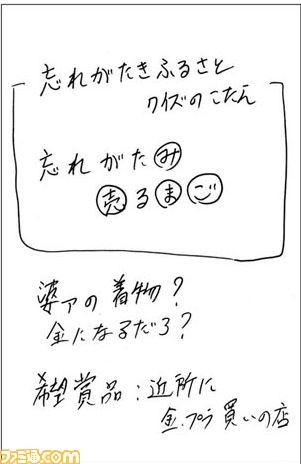 忘れがたきふるさと
クイズのこたえ
忘れがたみ
売るまご
婆アの着物?
金になるだろ?
希望賞品:近所に
金、プラ買いの店
ファミ通.com